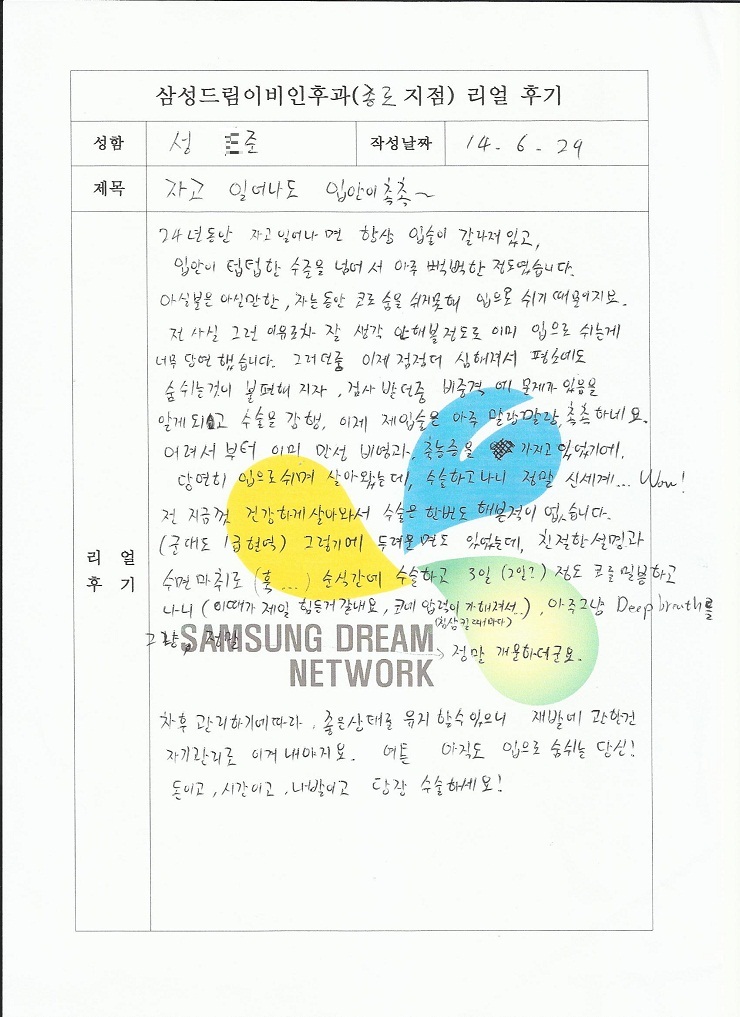 삼성드림이비인후과(종로 지점) 리얼 후기
성함 성 준 작성날짜 14. 6. 29
제목 자고 일어나도 입안이 촉촉~
리얼 후기
24년동안 자고 일어나면 항상 입술이 갈라져있고,
입안이 텁텁한 수준을 넘어서 아주 뻑뻑한 정도였습니다.
아실분은 아실만한, 자는동안 코로 숨을 쉬지못해 입으로 쉬기 때문이지요.
전 사실 그런 이유로차 잘 생각 안해볼정도로 이미 입으로 쉬는게
너무 당연했습니다. 그러던중 이제 점점더 심해져서 평소에도
숨쉬는것이 불편해 지자, 검사 받던중 비중격에 문제가 있음을
알게되고 수술을 강행, 이제 제입술은 아주 말랑말랑, 촉촉하네요.
어려서부터 이미 만성 비염과 축농증을 가지고 있었기에,
당연히 입으로쉬며 살아왔는데, 수술하고나니 정말 신세계... Wow!
전 지금껏 건강하게살아와서 수술은 한번도 해본적이 없습니다.
(군대도 1급현역) 그렇기에 두려운면도 있었는데, 친절한설명과
수면마취로 (훅...) 순식간에 수술하고 3일 (2일?) 정도 코를밀봉하고
나니 (이때가 제일 힘든거같애요, 코에 압력이 가해져서..) , 아주그냥 Deep breath를
(침삼킬때마다)
그냥, 정말
→ 정말 개운하더군요.
SAMSUNG DREAM
NETWORK
차후 관리하기에따라, 좋은상태를 유지할수있으니 재발에 관한건
자기관리로 이겨내야지요. 여튼 아직도 입으로 숨쉬는 당신!
돈이고, 시간이고, 나발이고 당장 수술하세요!